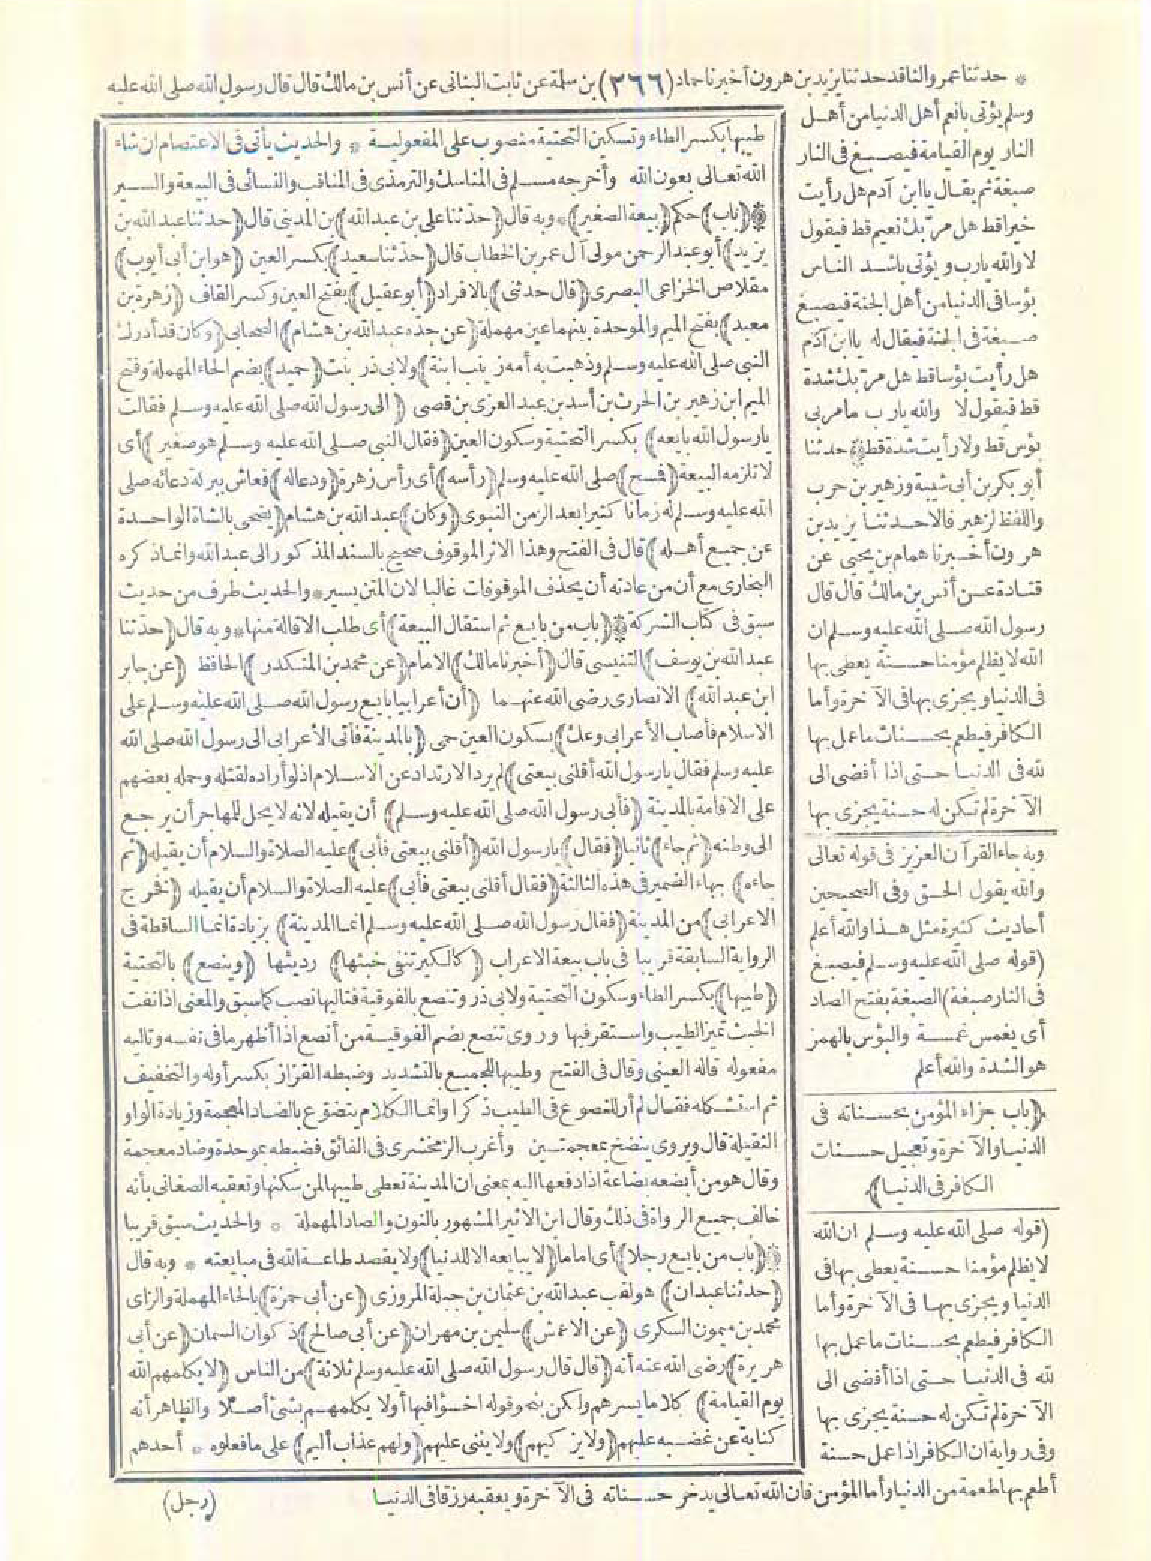 * حدثنا عمرو الناقد حدثنا يزيد بن هرون أخبرنا حماد (٣٦٦) بن سلمة عن ثابت البناني عن أنس بن مالك قال قال رسول الله صلى الله عليه
وسلم يؤتى بأنعم أهل الدنيا من أهل
النار يوم القيامة فيصبغ في النار
صبغة ثم يقال يا ابن آدم هل رأيت
خيرا قط هل مر بك نعيم قط فيقول
لا والله يا رب ويؤتى بأشد الناس
بؤسا في الدنيا من أهل الجنة فيصبغ
صبغة في الجنة فيقال له يا ابن آدم
هل رأيت بؤسا قط هل مر بك شدة
قط فيقول لا والله يا رب ما مر بي
بؤس قط ولا رأيت شدة قط * حدثنا
أبو بكر بن أبي شيبة وزهير بن حرب
واللفظ لزهير قالا حدثنا يزيد بن
هرون أخبرنا همام بن يحيى عن
قتادة عن أنس بن مالك قال قال
رسول الله صلى الله عليه وسلم ان
الله لا يظلم مؤمنا حسنة يعطى بها
في الدنيا ويجزى بها في الآخرة وأما
الكافر فيطعم بحسنات ما عمل بها
لله في الدنيا حتى اذا أفضى الى
الآخرة لم تكن له حسنة يجزى بها
وبه جاء القرآن العزيز في قوله تعالى
والله يقول الحق وفي الصحيحين
أحاديث كثيرة مثل هذا والله أعلم
(قوله صلى الله عليه وسلم فيصبغ
في النار صبغة) الصبغة بفتح الصاد
أي يغمس غمسة والبؤس بالهمز
هو الشدة والله أعلم
(باب جزاء المؤمن بحسناته في
الدنيا والآخرة وتعجيل حسنات
الكافر في الدنيا)
(قوله صلى الله عليه وسلم ان الله
لا يظلم مؤمنا حسنة يعطى بها في
الدنيا ويجزى بها في الآخرة وأما
الكافر فيطعم بحسنات ما عمل بها
لله في الدنيا حتى اذا أفضى الى
الآخرة لم تكن له حسنة يجزى بها
وفي رواية ان الكافر اذا عمل حسنة
أطعم بها طعمة من الدنيا وأما المؤمن فان الله تعالى يدخر حسناته في الآخرة ويعقبه رزقا في الدنيا
طيبها بكسر الطاء وتسكين التحتية منصوب على المفعولية * والحديث يأتي في الاعتصام ان شاء
الله تعالى بعون الله وأخرجه مسلم في المناسك والترمذي في المناقب والنسائي في البيعة والسير
* (باب) حكم (بيعة الصغير) * وبه قال (حدثنا علي بن عبد الله) بن المديني قال (حدثنا عبد الله بن
يزيد) أبو عبد الرحمن مولى آل عمر بن الخطاب قال (حدثنا سعيد) بكسر العين (هو ابن أبي أيوب)
مقلاص الخزاعي البصري (قال حدثني) بالافراد (أبو عقيل) بفتح العين وكسر القاف (زهرة بن
معبد) بفتح الميم والموحدة بينهما عين مهملة (عن جده عبد الله بن هشام) الصحابي (وكان قد أدرك
النبي صلى الله عليه وسلم وذهبت به أمه زينب ابنة) ولابي ذر بنت (حميد) بضم الحاء المهملة وفتح
الميم ابن زهير بن الحرث بن أسد بن عبد العزى بن قصي (الى رسول الله صلى الله عليه وسلم فقالت
يا رسول الله بايعه) بكسر التحتية وسكون العين (فقال النبي صلى الله عليه وسلم هو صغير) أي
لا تلزمه البيعة (فمسح) صلى الله عليه وسلم (رأسه) أي رأس زهرة (ودعا له) فعاش ببركة دعائه صلى
الله عليه وسلم له زمانا كثيرا بعد الزمن النبوي (وكان) عبد الله بن هشام (يضحي بالشاة الواحدة
عن جميع أهله) قال في الفتح وهذا الاثر الموقوف صحيح بالسند المذكور الى عبد الله وانما ذكره
البخاري مع أن من عادته أن يحذف الموقوفات غالبا لان المتن يسير * والحديث طرف من حديث
سبق في كتاب الشركة * (باب من بايع ثم استقال البيعة) أي طلب الاقالة منها * وبه قال (حدثنا
عبد الله بن يوسف) التنيسي قال (أخبرنا مالك) الامام (عن محمد بن المنكدر) الحافظ (عن جابر
ابن عبد الله) الانصاري رضي الله عنهما (أن أعرابيا بايع رسول الله صلى الله عليه وسلم على
الاسلام فأصاب الأعرابي وعك) بسكون العين حمى (بالمدينة فأتى الأعرابي الى رسول الله صلى الله
عليه وسلم فقال يا رسول الله أقلني بيعتي) لم يرد الارتداد عن الاسلام اذ لو أراده لقتله وحمله بعضهم
على الاقامة بالمدينة (فأبى رسول الله صلى الله عليه وسلم) أن يقيله لانه لا يحل للمهاجر أن يرجع
الى وطنه (ثم جاء) ثانيا (فقال) يا رسول الله (أقلني بيعتي فأبى) عليه الصلاة والسلام أن يقيله (ثم
جاءه) بهاء الضمير في هذه الثالثة (فقال أقلني بيعتي فأبى) عليه الصلاة والسلام أن يقيله (فخرج
الاعرابي) من المدينة (فقال رسول الله صلى الله عليه وسلم انما المدينة) بزيادة انما الساقطة في
الرواية السابقة قريبا في باب بيعة الاعراب (كالكير تنفي خبثها) رديئها (وينصع) بالتحتية
(طيبها) بكسر الطاء وسكون التحتية ولابي ذر وتنصع بالفوقية فتاليها نصب كما سبق والمعنى اذا نفت
الخبث تميز الطيب واستقر فيها وروي تنصع بضم الفوقية من أنصع اذا أظهر ما في نفسه وتاليه
مفعوله قاله العيني وقال في الفتح وطيبها للجميع بالتشديد وضبطه القزاز بكسر أوله والتخفيف
ثم استشكله فقال لم أر للنصوع في الطيب ذكرا وانما الكلام يتضوع بالضاد المعجمة وزيادة الواو
الثقيلة قال ويروى ينضخ بمعجمتين وأغرب الزمخشري في الفائق فضبطه بموحدة وضاد معجمة
وقال هو من أبضعه بضاعة اذا دفعها اليه بمعنى ان المدينة تعطي طيبها لمن سكنها وتعقبه الصغاني بأنه
خالف جميع الرواة في ذلك وقال ابن الاثير المشهور بالنون والصاد المهملة * والحديث سبق قريبا
* (باب من بايع رجلا) أي اماما (لا يبايعه الا للدنيا) ولا يقصد طاعة الله في مبايعته * وبه قال
(حدثنا عبدان) هو لقب عبد الله بن عثمان بن جبلة المروزي (عن أبي حمزة) بالحاء المهملة والزاي
محمد بن ميمون السكري (عن الاعمش) سليمن بن مهران (عن أبي صالح) ذكوان السمان (عن أبي
هريرة) رضي الله عنه أنه (قال قال رسول الله صلى الله عليه وسلم ثلاثة) من الناس (لا يكلمهم الله
يوم القيامة) كلاما يسرهم ولكن بنحو قوله اخسؤا فيها أو لا يكلمهم بشئ أصلا والظاهر أنه
كناية عن غضبه عليهم (ولا يزكيهم) ولا يثني عليهم (ولهم عذاب أليم) على ما فعلوه * أحدهم
(رجل)